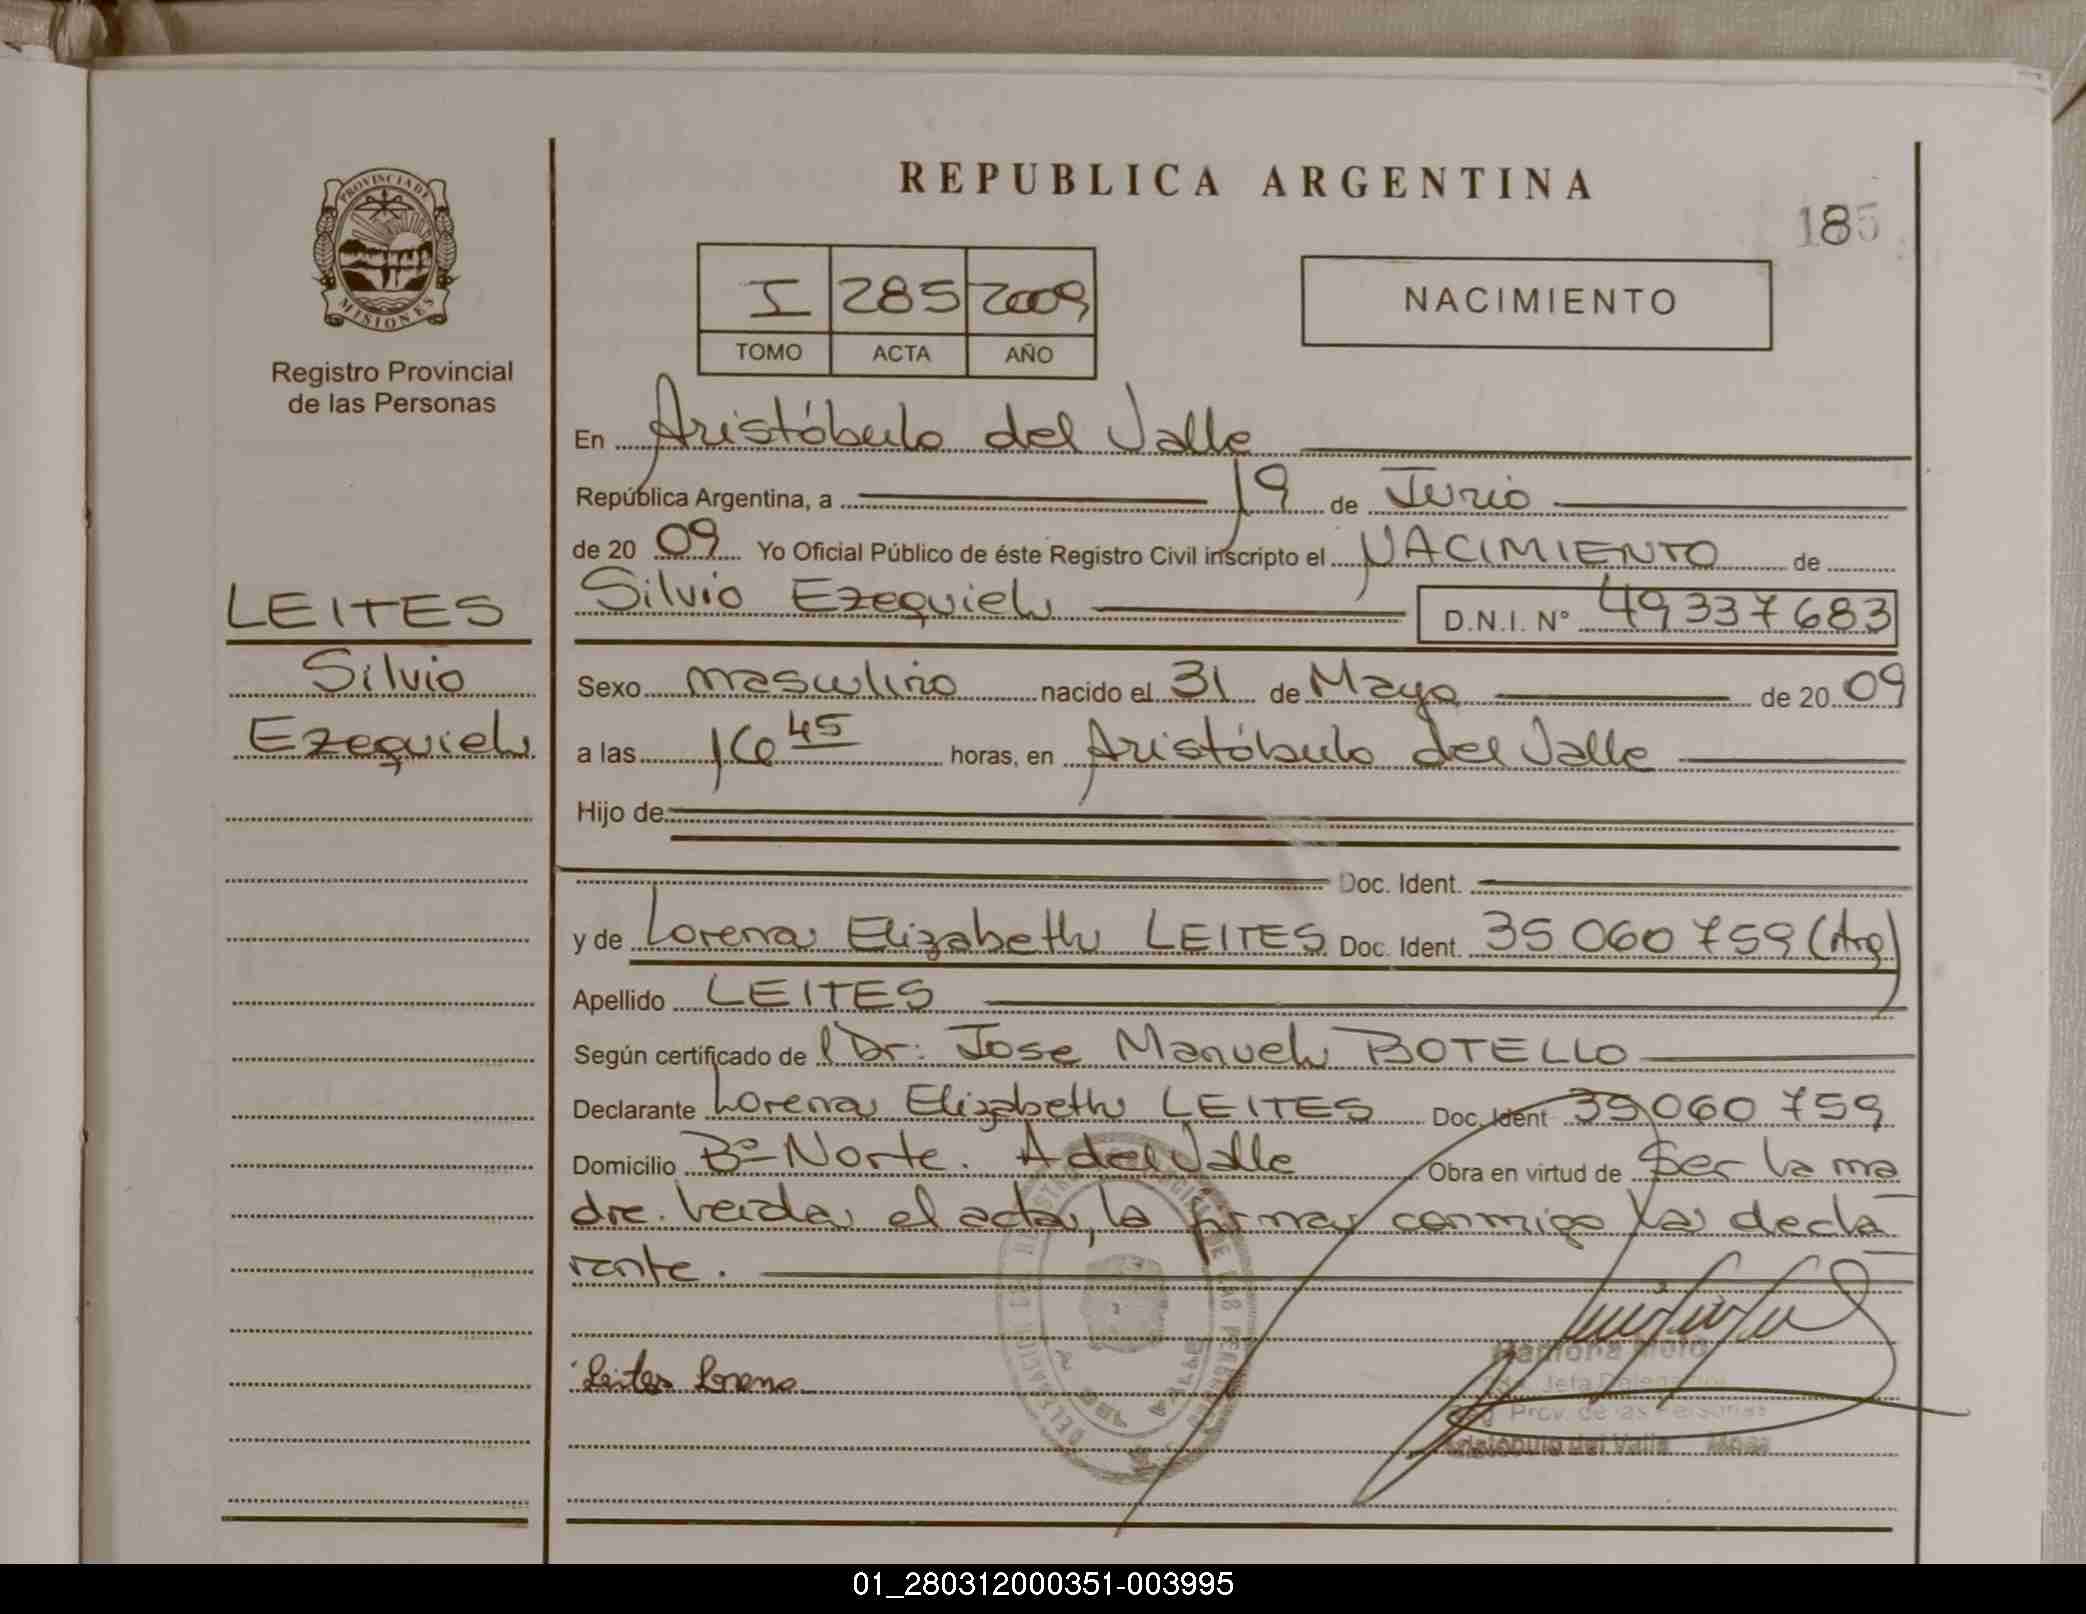 REPUBLICA ARGENTINA
185
PROVINCIA DE
MISIONES
Registro Provincial
de las Personas
I 285 2009
TOMO ACTA AÑO
NACIMIENTO
En Aristóbulo del Valle
República Argentina, a 19 de Junio
de 20 09 Yo Oficial Público de éste Registro Civil inscripto el NACIMIENTO de
LEITES
Silvio
Ezequiel
Silvio Ezequiel D.N.I. Nº 49337683
Sexo masculino nacido el 31 de Mayo de 20 09
a las 16 45 horas, en Aristóbulo del Valle
Hijo de
Doc. Ident.
y de Lorena Elizabeth LEITES Doc. Ident. 35060759 (Arg)
Apellido LEITES
Según certificado de l Dr. Jose Manuel BOTELLO
Declarante Lorena Elizabeth LEITES Doc. Ident 35060759
Domicilio Bº Norte. A del Valle Obra en virtud de Ser la ma
dre. Leida el acta, la firma conmigo la decla
rante.
Leites Lorena
Prov. de las Personas
Aristóbulo del Valle Mnes
01_280312000351-003995